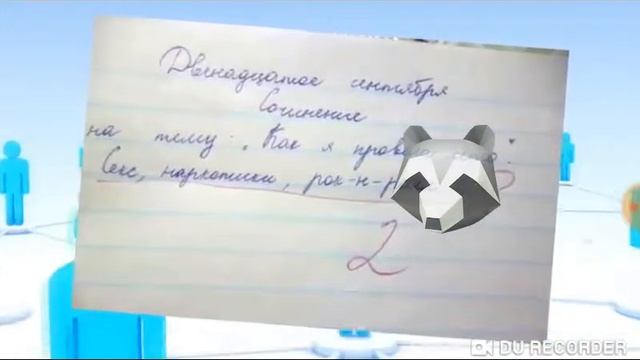 Двенадцатое сентября
Сочинение
на тему: „Как я
Секс, наркотики, рок-н-
2
DU RECORDER